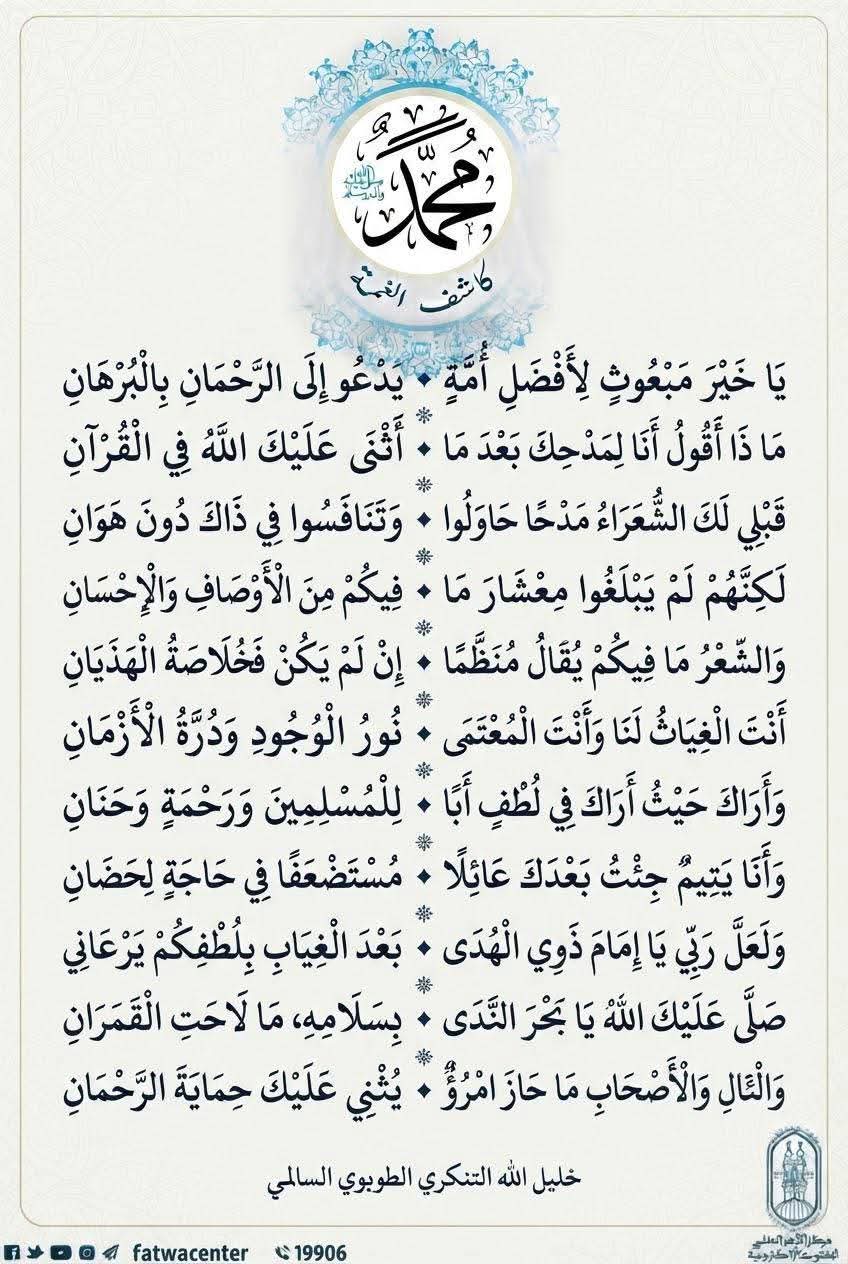 محمد
صلى الله عليه وآله وسلم
كاشف الغمة
يَا خَيْرَ مَبْعُوثٍ لِأَفْضَلِ أُمَّةٍ ◆ يَدْعُو إِلَى الرَّحْمَانِ بِالْبُرْهَانِ
مَا ذَا أَقُولُ أَنَا لِمَدْحِكَ بَعْدَ مَا ◆ أَثْنَى عَلَيْكَ اللَّهُ فِي الْقُرْآنِ
قَبْلِي لَكَ الشُّعَرَاءُ مَدْحًا حَاوَلُوا ◆ وَتَنَافَسُوا فِي ذَاكَ دُونَ هَوَانِ
لَكِنَّهُمْ لَمْ يَبْلَغُوا مِعْشَارَ مَا ◆ فِيكُمْ مِنَ الْأَوْصَافِ وَالْإِحْسَانِ
وَالشِّعْرُ مَا فِيكُمْ يُقَالُ مُنَظَّمًا ◆ إِنْ لَمْ يَكُنْ فَخُلَاصَةُ الْهَذَيَانِ
أَنْتَ الْغِيَاثُ لَنَا وَأَنْتَ الْمُعْتَمَى ◆ نُورُ الْوُجُودِ وَدُرَّةُ الْأَزْمَانِ
وَأَرَاكَ حَيْثُ أَرَاكَ فِي لُطْفٍ أَبًا ◆ لِلْمُسْلِمِينَ وَرَحْمَةٍ وَحَنَانِ
وَأَنَا يَتِيمٌ جِئْتُ بَعْدَكَ عَائِلًا ◆ مُسْتَضْعَفًا فِي حَاجَةٍ لِحَضَانِ
وَلَعَلَّ رَبِّي يَا إِمَامَ ذَوِي الْهُدَى ◆ بَعْدَ الْغِيَابِ بِلُطْفِكُمْ يَرْعَانِي
صَلَّى عَلَيْكَ اللهُ يَا بَحْرَ النَّدَى ◆ بِسَلَامِهِ، مَا لَاحَتِ الْقَمَرَانِ
وَالْئَالِ وَالْأَصْحَابِ مَا حَازَ امْرُؤٌ ◆ يُثْنِي عَلَيْكَ حِمَايَةَ الرَّحْمَانِ
خليل الله التنكري الطوبوي السالمي
fatwacenter 19906